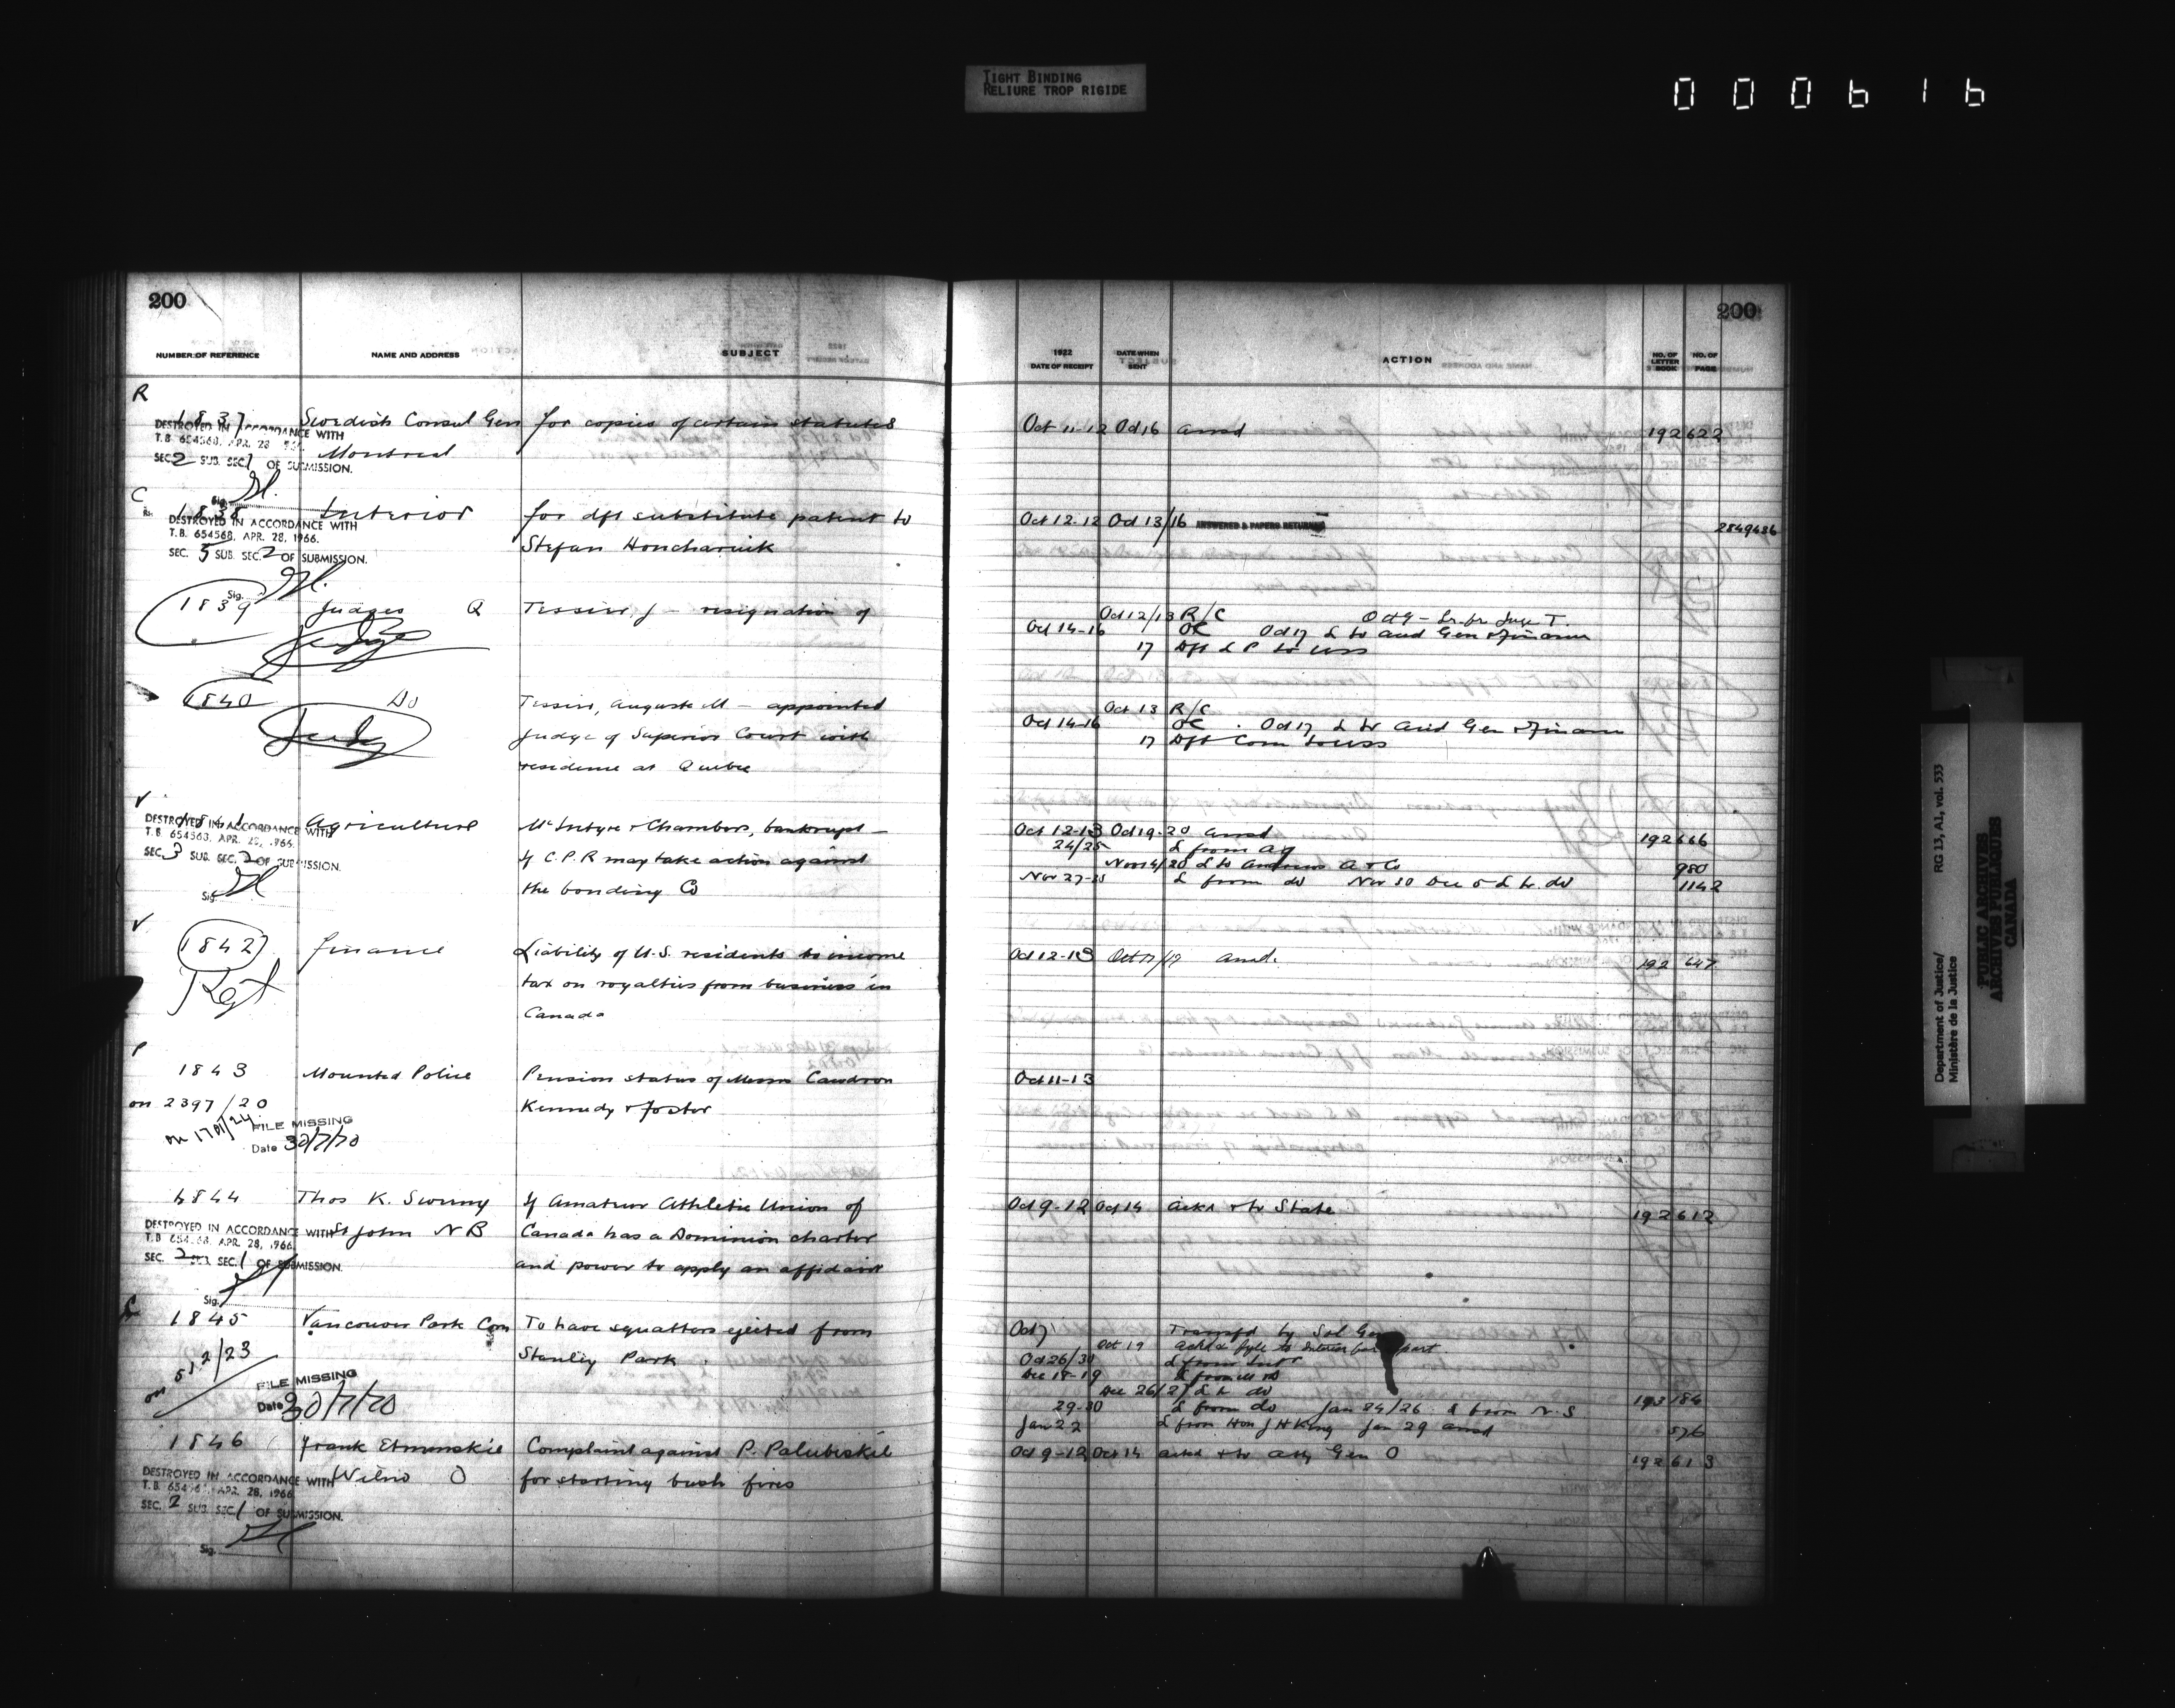 TIGHT BINDING
RELIURE TROP RIGIDE
000616
200
NUMBER OF REFERENCE NAME AND ADDRESS SUBJECT
R
1837 Swedish Consul Gen for copies of certain statutes
DESTROYED IN ACCORDANCE WITH
T.B. 654568, APR. 28
Montreal
SEC. 2 SUB. SEC. 1 OF SUBMISSION.
Sig.
C
1838 Interior for dft substitute patent to
DESTROYED IN ACCORDANCE WITH
T.B. 654568, APR. 28, 1966.
Stefan Honcharuik
SEC. 5 SUB. SEC. 2 OF SUBMISSION.
Sig.
1839 Judges Q Tessier, J — resignation of
Judge
1840 Do Tessier, Auguste M — appointed
Judge of Superior Court with
residence at Quebec
V
1841 Agriculture McIntyre & Chambers, bankrupt —
DESTROYED IN ACCORDANCE WITH
T.B. 654568, APR. 28, 1966.
if C.P.R may take action against
SEC. 3 SUB. SEC. 2 OF SUBMISSION.
the bonding Co
Sig.
V
1842 Finance Liability of U.S. residents to income
tax on royalties from business in
Canada
P
1843 Mounted Police Pension status of Messrs Cawdron
on 2397/20 Kennedy & Foster
on 1701/24 FILE MISSING
Date 30/7/70
1844 Thos K. Sweeny If Amateur Athletic Union of
DESTROYED IN ACCORDANCE WITH St John N B Canada has a Dominion charter
T.B. 654568, APR. 28, 1966
SEC. 2 SUB. SEC. 1 OF SUBMISSION.
and power to apply an affidavit
Sig.
1845 Vancouver Park Com To have squatters ejected from
on 512/23 Stanley Park
FILE MISSING
Date 30/7/70
1846 Frank Etmonskie Complaint against P. Palubeskie
DESTROYED IN ACCORDANCE WITH Wilno O for starting bush fires
T.B. 654568, APR. 28, 1966
SEC. 2 SUB. SEC. 1 OF SUBMISSION.
Sig.
200
1922 DATE OF RECEIPT DATE WHEN SENT ACTION NO. OF LETTER BOOK NO. OF PAGE
Oct 11-12 Oct 16 ansd 192 622
Oct 12-12 Oct 13/16 ANSWERED & PAPERS RETURNED 2849436
Oct 12/13 R/C
Oct 14-16 OC Oct 17 L to Aud Gen & Finance
17 Dft L P to USS
Oct 13 R/C
Oct 14-16 OC . Oct 17 L to Aud Gen & Finance
17 Dft Com to USS
Oct 12-13 Oct 19-20 ansd 192 666
24/25 L from Ag
Nov 14/20 L to Andrews A & Co 980
Nov 27-28 L from do Nov 30 Dec 5 L to do 1142
Oct 12-13 Oct 17/17 ansd. 192 647
Oct 11-13
Oct 9-12 Oct 14 ackd & to State 192 612
Oct 7 Transfd by Sol Gen
Oct 19
Oct 26/30 L from Intr
Dec 18-19 L from M D
Dec 26/27 L to do 193 184
29-30 L from do Jan 24/26 L from N.S
Jan 22 L from Hon J H King Jan 29 ansd 576
Oct 9-12 Oct 14 ackd & to Atty Gen O 192 613
Department of Justice/ RG 13, A1, vol. 533
Ministère de la Justice
PUBLIC ARCHIVES
ARCHIVES PUBLIQUES
CANADA